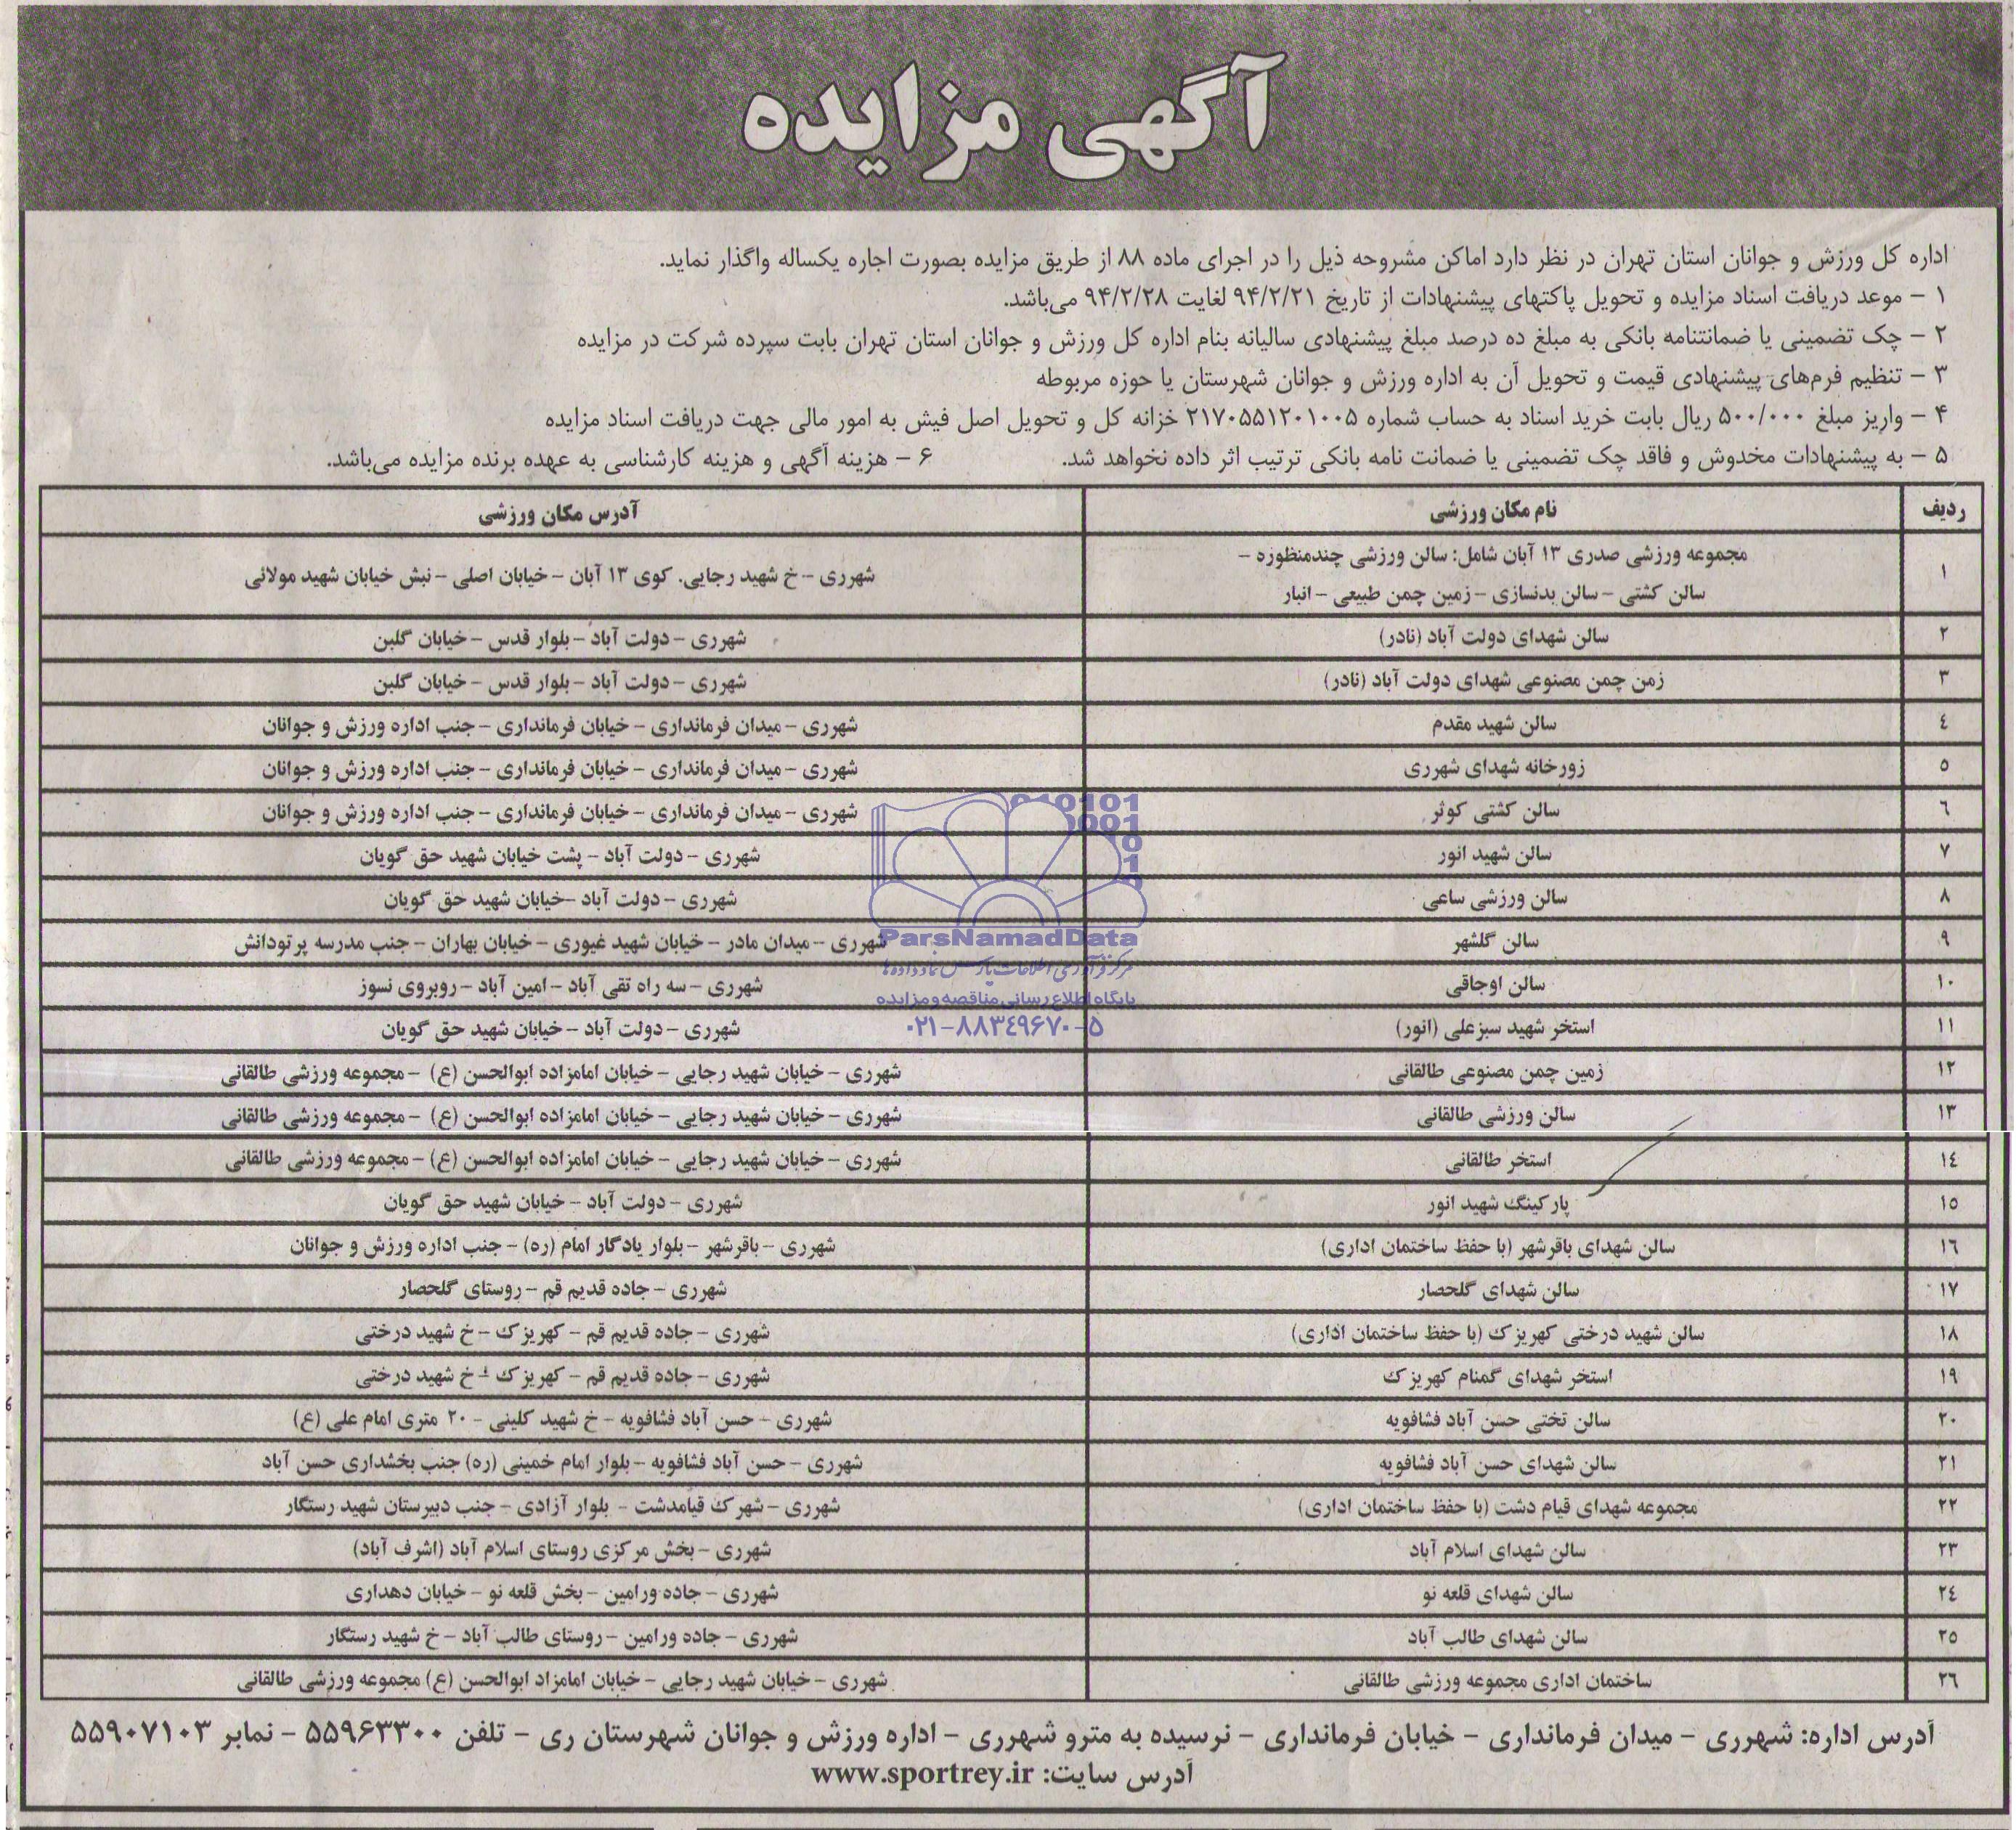 آگهی مزایده
اداره کل ورزش و جوانان استان تهران در نظر دارد اماکن مشروحه ذیل را در اجرای ماده ۸۸ از طریق مزایده بصورت اجاره یکساله واگذار نماید.
۱ – موعد دریافت اسناد مزایده و تحویل پاکتهای پیشنهادات از تاریخ ۹۴/۲/۲۱ لغایت ۹۴/۲/۲۸ می‌باشد.
۲ – چک تضمینی یا ضمانتنامه بانکی به مبلغ ده درصد مبلغ پیشنهادی سالیانه بنام اداره کل ورزش و جوانان استان تهران بابت سپرده شرکت در مزایده
۳ – تنظیم فرم‌های پیشنهادی قیمت و تحویل آن به اداره ورزش و جوانان شهرستان یا حوزه مربوطه
۴ – واریز مبلغ ۵۰۰/۰۰۰ ریال بابت خرید اسناد به حساب شماره ۲۱۷۰۵۵۱۲۰۱۰۰۵ خزانه کل و تحویل اصل فیش به امور مالی جهت دریافت اسناد مزایده
۵ – به پیشنهادات مخدوش و فاقد چک تضمینی یا ضمانت نامه بانکی ترتیب اثر داده نخواهد شد. ۶ – هزینه آگهی و هزینه کارشناسی به عهده برنده مزایده می‌باشد.
ردیف نام مکان ورزشی آدرس مکان ورزشی
۱ مجموعه ورزشی صدری ۱۳ آبان شامل: سالن ورزشی چندمنظوره –
سالن کشتی – سالن بدنسازی – زمین چمن طبیعی – انبار شهرری – خ شهید رجایی. کوی ۱۳ آبان – خیابان اصلی – نبش خیابان شهید مولائی
۲ سالن شهدای دولت آباد (نادر) شهرری – دولت آباد – بلوار قدس – خیابان گلبن
۳ زمن چمن مصنوعی شهدای دولت آباد (نادر) شهرری – دولت آباد – بلوار قدس – خیابان گلبن
٤ سالن شهید مقدم شهرری – میدان فرمانداری – خیابان فرمانداری – جنب اداره ورزش و جوانان
٥ زورخانه شهدای شهرری شهرری – میدان فرمانداری – خیابان فرمانداری – جنب اداره ورزش و جوانان
٦ سالن کشتی کوثر شهرری – میدان فرمانداری – خیابان فرمانداری – جنب اداره ورزش و جوانان
۷ سالن شهید انور شهرری – دولت آباد – پشت خیابان شهید حق گویان
۸ سالن ورزشی ساعی شهرری – دولت آباد –خیابان شهید حق گویان
۹ سالن گلشهر شهرری – میدان مادر – خیابان شهید غیوری – خیابان بهاران – جنب مدرسه پرتودانش
۱۰ سالن اوجاقی شهرری – سه راه تقی آباد – امین آباد – روبروی نسوز
۱۱ استخر شهید سبزعلی (انور) شهرری – دولت آباد – خیابان شهید حق گویان
۱۲ زمین چمن مصنوعی طالقانی شهرری – خیابان شهید رجایی – خیابان امامزاده ابوالحسن (ع) – مجموعه ورزشی طالقانی
۱۳ سالن ورزشی طالقانی شهرری – خیابان شهید رجایی – خیابان امامزاده ابوالحسن (ع) – مجموعه ورزشی طالقانی
۱٤ استخر طالقانی شهرری – خیابان شهید رجایی – خیابان امامزاده ابوالحسن (ع) – مجموعه ورزشی طالقانی
۱٥ پارکینگ شهید انور شهرری – دولت آباد – خیابان شهید حق گویان
۱٦ سالن شهدای باقرشهر (با حفظ ساختمان اداری) شهرری – باقرشهر – بلوار یادگار امام (ره) – جنب اداره ورزش و جوانان
۱۷ سالن شهدای گلحصار شهرری – جاده قدیم قم – روستای گلحصار
۱۸ سالن شهید درختی کهریزک (با حفظ ساختمان اداری) شهرری – جاده قدیم قم – کهریزک – خ شهید درختی
۱۹ استخر شهدای گمنام کهریزک شهرری – جاده قدیم قم – کهریزک – خ شهید درختی
۲۰ سالن تختی حسن آباد فشافویه شهرری – حسن آباد فشافویه – خ شهید کلینی – ۲۰ متری امام علی (ع)
۲۱ سالن شهدای حسن آباد فشافویه شهرری – حسن آباد فشافویه – بلوار امام خمینی (ره) جنب بخشداری حسن آباد
۲۲ مجموعه شهدای قیام دشت (با حفظ ساختمان اداری) شهرری – شهرک قیامدشت – بلوار آزادی – جنب دبیرستان شهید رستگار
۲۳ سالن شهدای اسلام آباد شهرری – بخش مرکزی روستای اسلام آباد (اشرف آباد)
۲٤ سالن شهدای قلعه نو شهرری – جاده ورامین – بخش قلعه نو – خیابان دهداری
۲٥ سالن شهدای طالب آباد شهرری – جاده ورامین – روستای طالب آباد – خ شهید رستگار
۲٦ ساختمان اداری مجموعه ورزشی طالقانی شهرری – خیابان شهید رجایی – خیابان امامزاد ابوالحسن (ع) مجموعه ورزشی طالقانی
ParsNamadData
مرکز فرآوری اطلاعات پارس نماد داده ها
پایگاه اطلاع رسانی مناقصه و مزایده
۰۲۱–۸۸۳٤۹۶۷۰–۵
آدرس اداره: شهرری – میدان فرمانداری – خیابان فرمانداری – نرسیده به مترو شهرری – اداره ورزش و جوانان شهرستان ری – تلفن ۵۵۹۶۳۳۰۰ – نمابر ۵۵۹۰۷۱۰۳
آدرس سایت: www.sportrey.ir